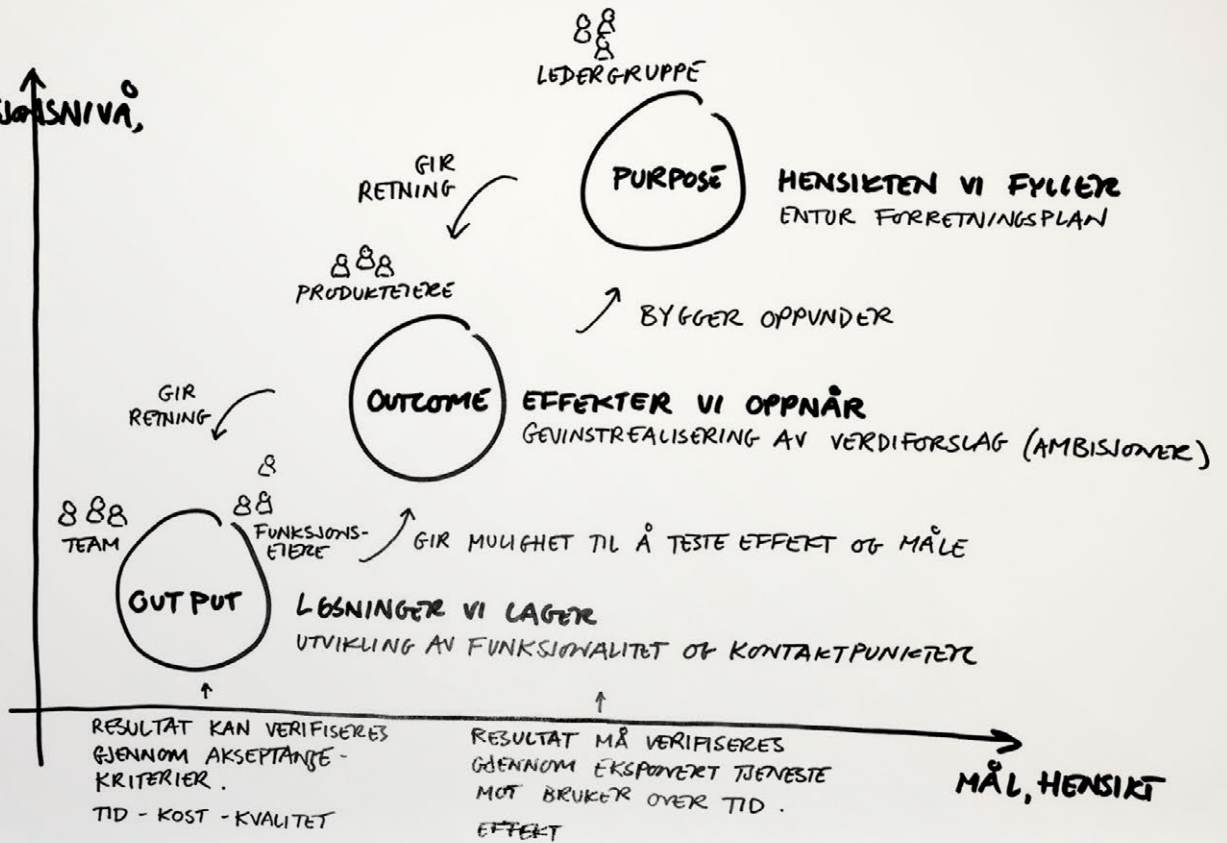 LEDERGRUPPE
SJONSNIVÅ,
GIR
RETNING
PURPOSE
HENSIKTEN VI FYLLER
ENTUR FORRETNINGSPLAN
PRODUKTEIERE
BYGGER OPPUNDER
GIR
RETNING
OUTCOME
EFFEKTER VI OPPNÅR
GEVINSTREALISERING AV VERDIFORSLAG (AMBISJONER)
TEAM
FUNKSJONS-
EIERE
GIR MULIGHET TIL Å TESTE EFFEKT OG MÅLE
OUTPUT
LØSNINGER VI LAGER
UTVIKLING AV FUNKSJONALITET OG KONTAKTPUNKTER
RESULTAT KAN VERIFISERES
GJENNOM AKSEPTANSE-
KRITERIER.
TID - KOST - KVALITET
RESULTAT MÅ VERIFISERES
GJENNOM EKSPONERT TJENESTE
MOT BRUKER OVER TID.
EFFEKT
MÅL, HENSIKT